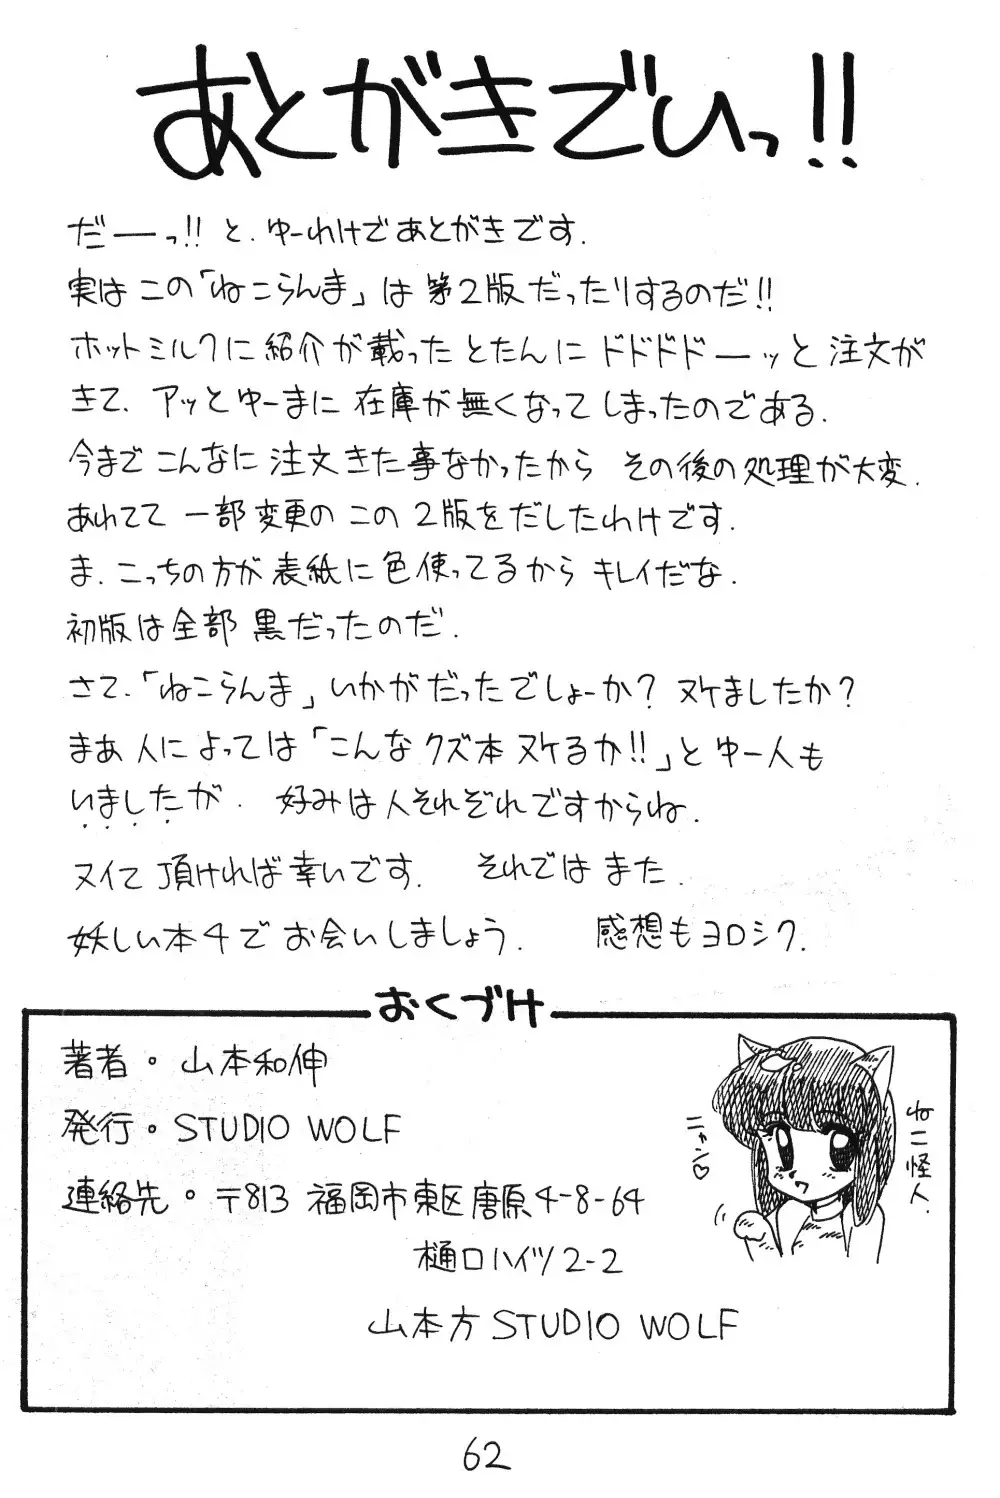 あとがきでいっ!!
だーっ!! と、ゆーわけであとがきです。
実はこの「ねこらんま」は第2版だったりするのだ!!
ホットミルクに紹介が載ったとたんにドドドドーッと注文が
きて、アッとゆーまに在庫が無くなってしまったのである。
今までこんなに注文きた事なかったからその後の処理が大変。
あわてて一部変更のこの2版をだしたわけです。
ま、こっちの方が表紙に色使ってるからキレイだな。
初版は全部黒だったのだ。
さて、「ねこらんま」いかがだったでしょーか?ヌケましたか?
まあ人によっては「こんなクズ本ヌケるか!!」とゆー人も
いましたが、好みは人それぞれですからね。
ヌイて頂ければ幸いです。それではまた。
妖しい本4でお会いしましょう。感想もヨロシク。
おくづけ
著者・山本和伸
発行・STUDIO WOLF
連絡先・〒813 福岡市東区唐原4-8-64
樋口ハイツ2-2
山本方 STUDIO WOLF
ニャン♡
ねこ怪人。
62